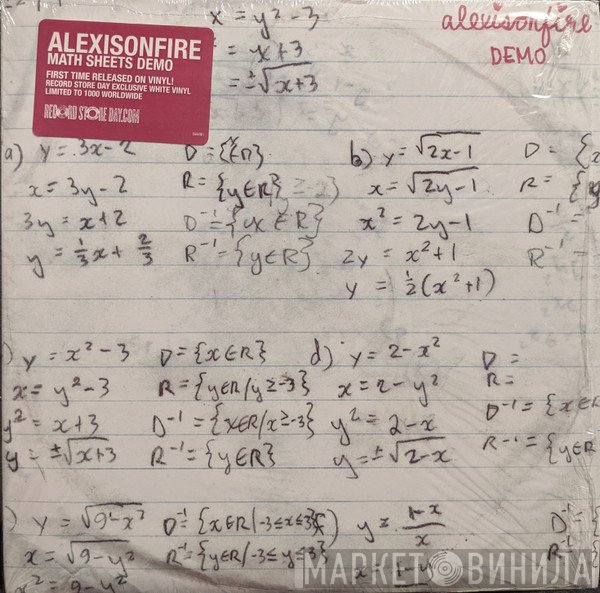 x = y² - 3
= x + 3
= ±√x+3
alexisonfire
DEMO
ALEXISONFIRE
MATH SHEETS DEMO
FIRST TIME RELEASED ON VINYL!
RECORD STORE DAY EXCLUSIVE WHITE VINYL
LIMITED TO 1000 WORLDWIDE
RECORD STORE DAY.COM
a) y = 3x - 2 D =
x = 3y - 2 R = {y∈R}
3y = x + 2 D⁻¹ = {x∈R}
y = 1/3 x + 2/3 R⁻¹ = {y∈R}
b) y = √2x-1 D = {x
x = √2y-1 R = {y
x² = 2y - 1 D⁻¹ =
2y = x² + 1 R⁻¹ =
y = ½(x² + 1)
) y = x² - 3 D = {x∈R}
x = y² - 3 R = {y∈R/y≥-3}
y² = x + 3 D⁻¹ = {x∈R/x≥-3}
y = ±√x+3 R⁻¹ = {y∈R}
d) y = 2 - x² D =
x = 2 - y² R =
y² = 2 - x D⁻¹ = {x∈R
y = ±√2-x R⁻¹ = {y∈R
) y = √9-x² D⁻¹ = {x∈R/-3≤x≤3}
x = √9-y² R⁻¹ = {y∈R/-3≤y≤3}
x² = 9 - y²
) y = 1-x/x D⁻¹ = {
x = 1-y R⁻¹
МАРКЕТ ВИНИЛА